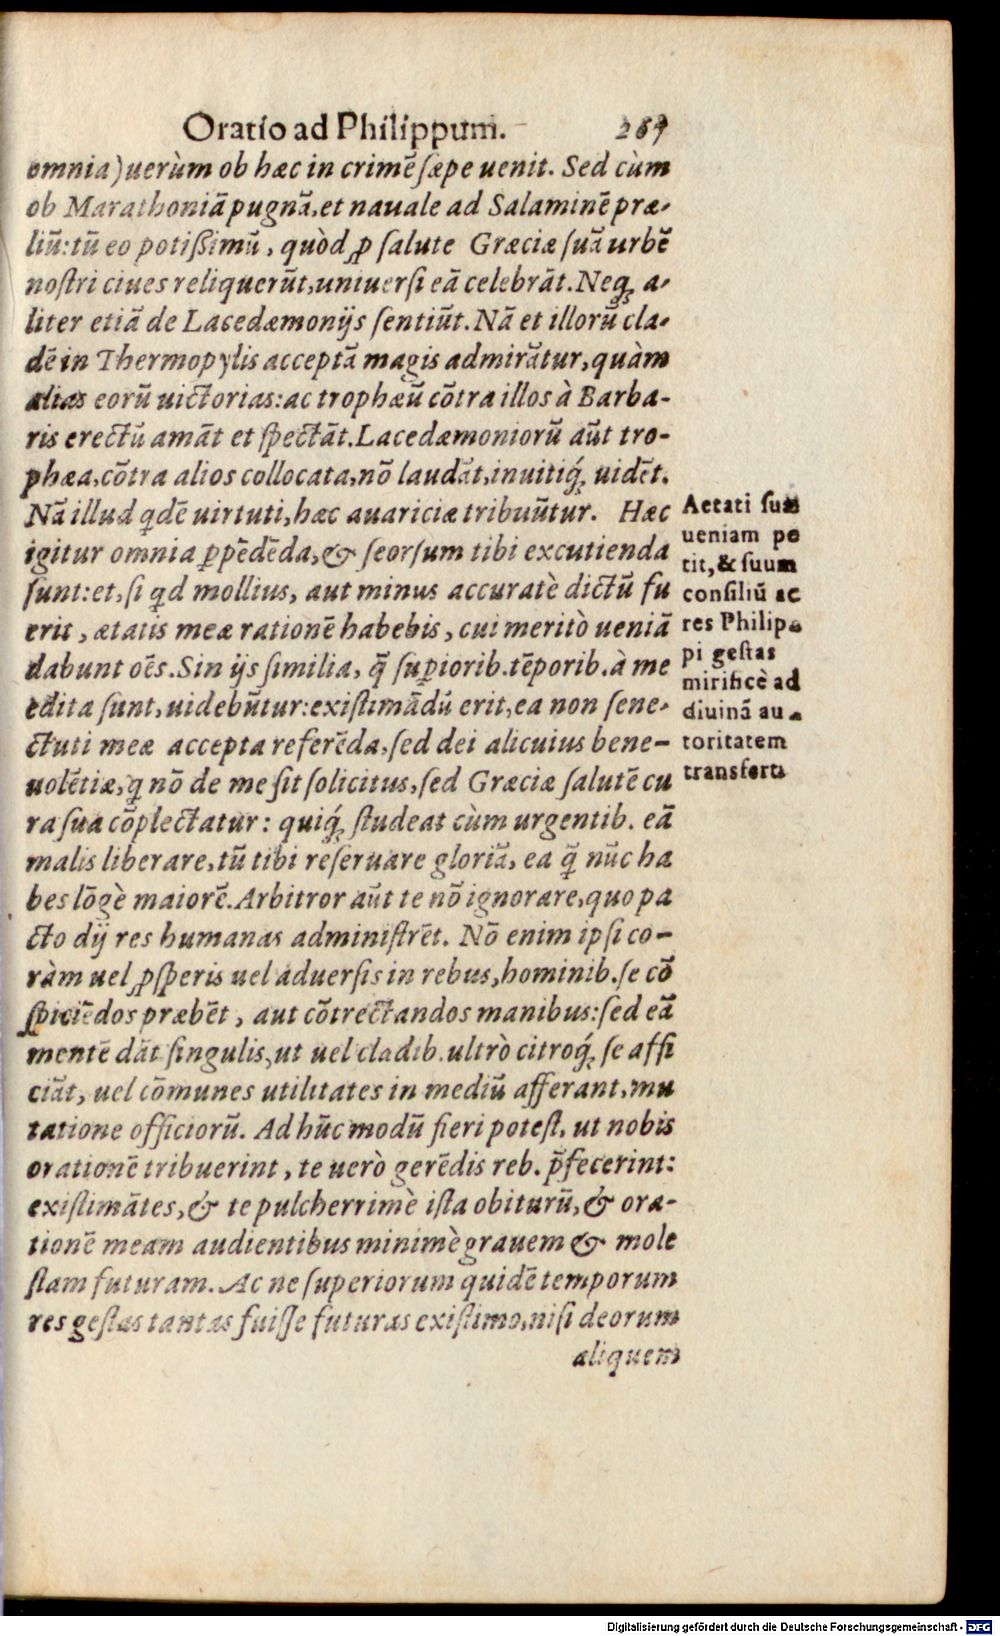 Oratio ad Philippum. 267
omnia) uerùm ob hæc in crimē ſæpe uenit. Sed cùm
ob Marathoniā pugnā, et nauale ad Salaminē præ-
liū: tū eo potißimū, quòd ꝓ ſalute Græciæ ſuā urbē
noſtri ciues reliquerūt, uniuerſi eā celebrāt. Neqꝫ a-
liter etiā de Lacedæmonijs ſentiūt. Nā et illorū cla-
dē in Thermopylis acceptā magis admirātur, quàm
alias eorū uictorias: ac trophæū cōtra illos à Barba-
ris erectū amāt et ſpectāt. Lacedæmoniorū aūt tro-
phæa, cōtra alios collocata, nō laudāt, inuitiqꝫ́ uidēt.
Nā illud qdē uirtuti, hæc auariciæ tribuūtur. Hæc
igitur omnia ꝑpēdēda, & ſeorſum tibi excutienda
ſunt: et, ſi qd mollius, aut minus accuratè dictū fu
erit, ætatis meæ rationē habebis, cui meritò ueniā
dabunt oēs. Sin ijs ſimilia, q̄ ſuꝑiorib. tēporib. à me
edita ſunt, uidebūtur: exiſtimādū erit, ea non ſene-
ctuti meæ accepta referēda, ſed dei alicuius bene-
uolētiæ, q nō de me ſit ſolicitus, ſed Græciæ ſalutē cu
ra ſua cōplectatur: quiqꝫ́ ſtudeat cùm urgentib. eā
malis liberare, tū tibi reſeruare gloriā, ea q̄ nūc ha
bes lōgè maiorē. Arbitror aūt te nō ignorare, quo pa
cto dij res humanas adminiſtrēt. Nō enim ipſi co-
ràm uel ꝓſperis uel aduerſis in rebus, hominib. ſe cō
ſpiciēdos præbēt, aut cōtrectandos manibus: ſed eā
mentē dāt ſingulis, ut uel cladib. ultrò citroqꝫ́ ſe affi
ciāt, uel cōmunes utilitates in mediū afferant, mu
tatione officiorū. Ad hūc modū fieri poteſt, ut nobis
orationē tribuerint, te uerò gerēdis reb. p̄fecerint:
exiſtimātes, & te pulcherrimè iſta obiturū, & ora-
tionē meam audientibus minimè grauem & mole
ſtam futuram. Ac ne ſuperiorum quidē temporum
res geſtas tantas fuiſſe futuras exiſtimo, niſi deorum
aliquem
Aetati ſuæ
ueniam pe
tit, & ſuum
conſiliū ac
res Philip-
pi geſtas
mirificè ad
diuinā au-
toritatem
transfert.
Digitalisierung gefördert durch die Deutsche Forschungsgemeinschaft - DFG